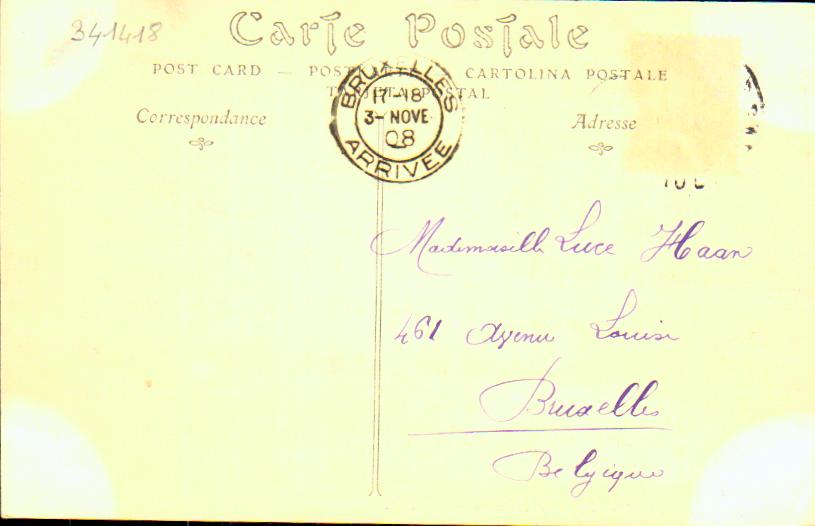 341418
Carte Postale
POST CARD — POST CARTOLINA POSTALE
POSTAL
Correspondance
Adresse
BRUXELLES
17-18
3- NOVE
08
ARRIVEE
Mademoiselle Luce Haan
461 Avenue Louise
Bruxelles
Belgique